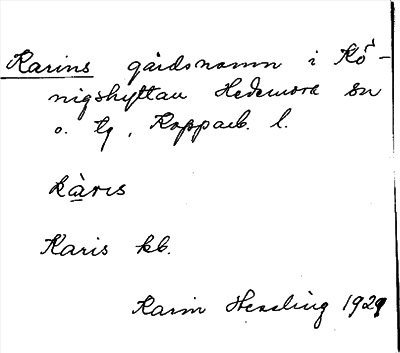 Karins gårdsnamn i Kö-
nigshyttan Hedemora sn
o. tg, Kopparb. l.
kàrɪs
Karis kb.
Karin Hessling 1929